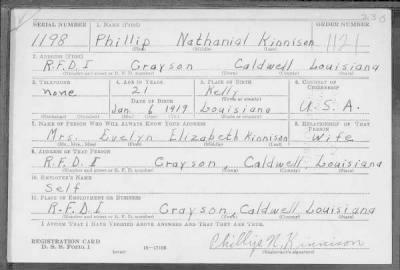 SERIAL NUMBER 1. NAME (Print) ORDER NUMBER
1198 Phillip Nathanial Kinnison 1121
(First) (Middle) (Last)
2. ADDRESS (Print)
R.F.D.I Grayson Caldwell Louisiana
(Number and street or R. F. D. number) (Town) (County) (State)
3. TELEPHONE 4. AGE IN YEARS 5. PLACE OF BIRTH 6. COUNTRY OF CITIZENSHIP
none 21 Kelly
DATE OF BIRTH (Town or county)
Jan 6 1919 Louisiana U.S.A.
(Exchange) (No.) (Mo.) (Day) (Yr.) (State or country)
7. NAME OF PERSON WHO WILL ALWAYS KNOW YOUR ADDRESS 8. RELATIONSHIP OF THAT PERSON
Mrs. Evelyn Elizabeth Kinnison Wife
(Mr., Mrs., Miss) (First) (Middle) (Last)
9. ADDRESS OF THAT PERSON
R.F.D.I Grayson, Caldwell Louisiana
(Number and street or R. F. D. number) (Town) (County) (State)
10. EMPLOYER'S NAME
Self
11. PLACE OF EMPLOYMENT OR BUSINESS
R.F.D.I Grayson, Caldwell Louisiana
(Number and street or R. F. D. number) (Town) (County) (State)
I AFFIRM THAT I HAVE VERIFIED ABOVE ANSWERS AND THAT THEY ARE TRUE.
REGISTRATION CARD
D. S. S. FORM 1
(over) 16—17105
Phillip N. Kinnison
(Registrant's signature)